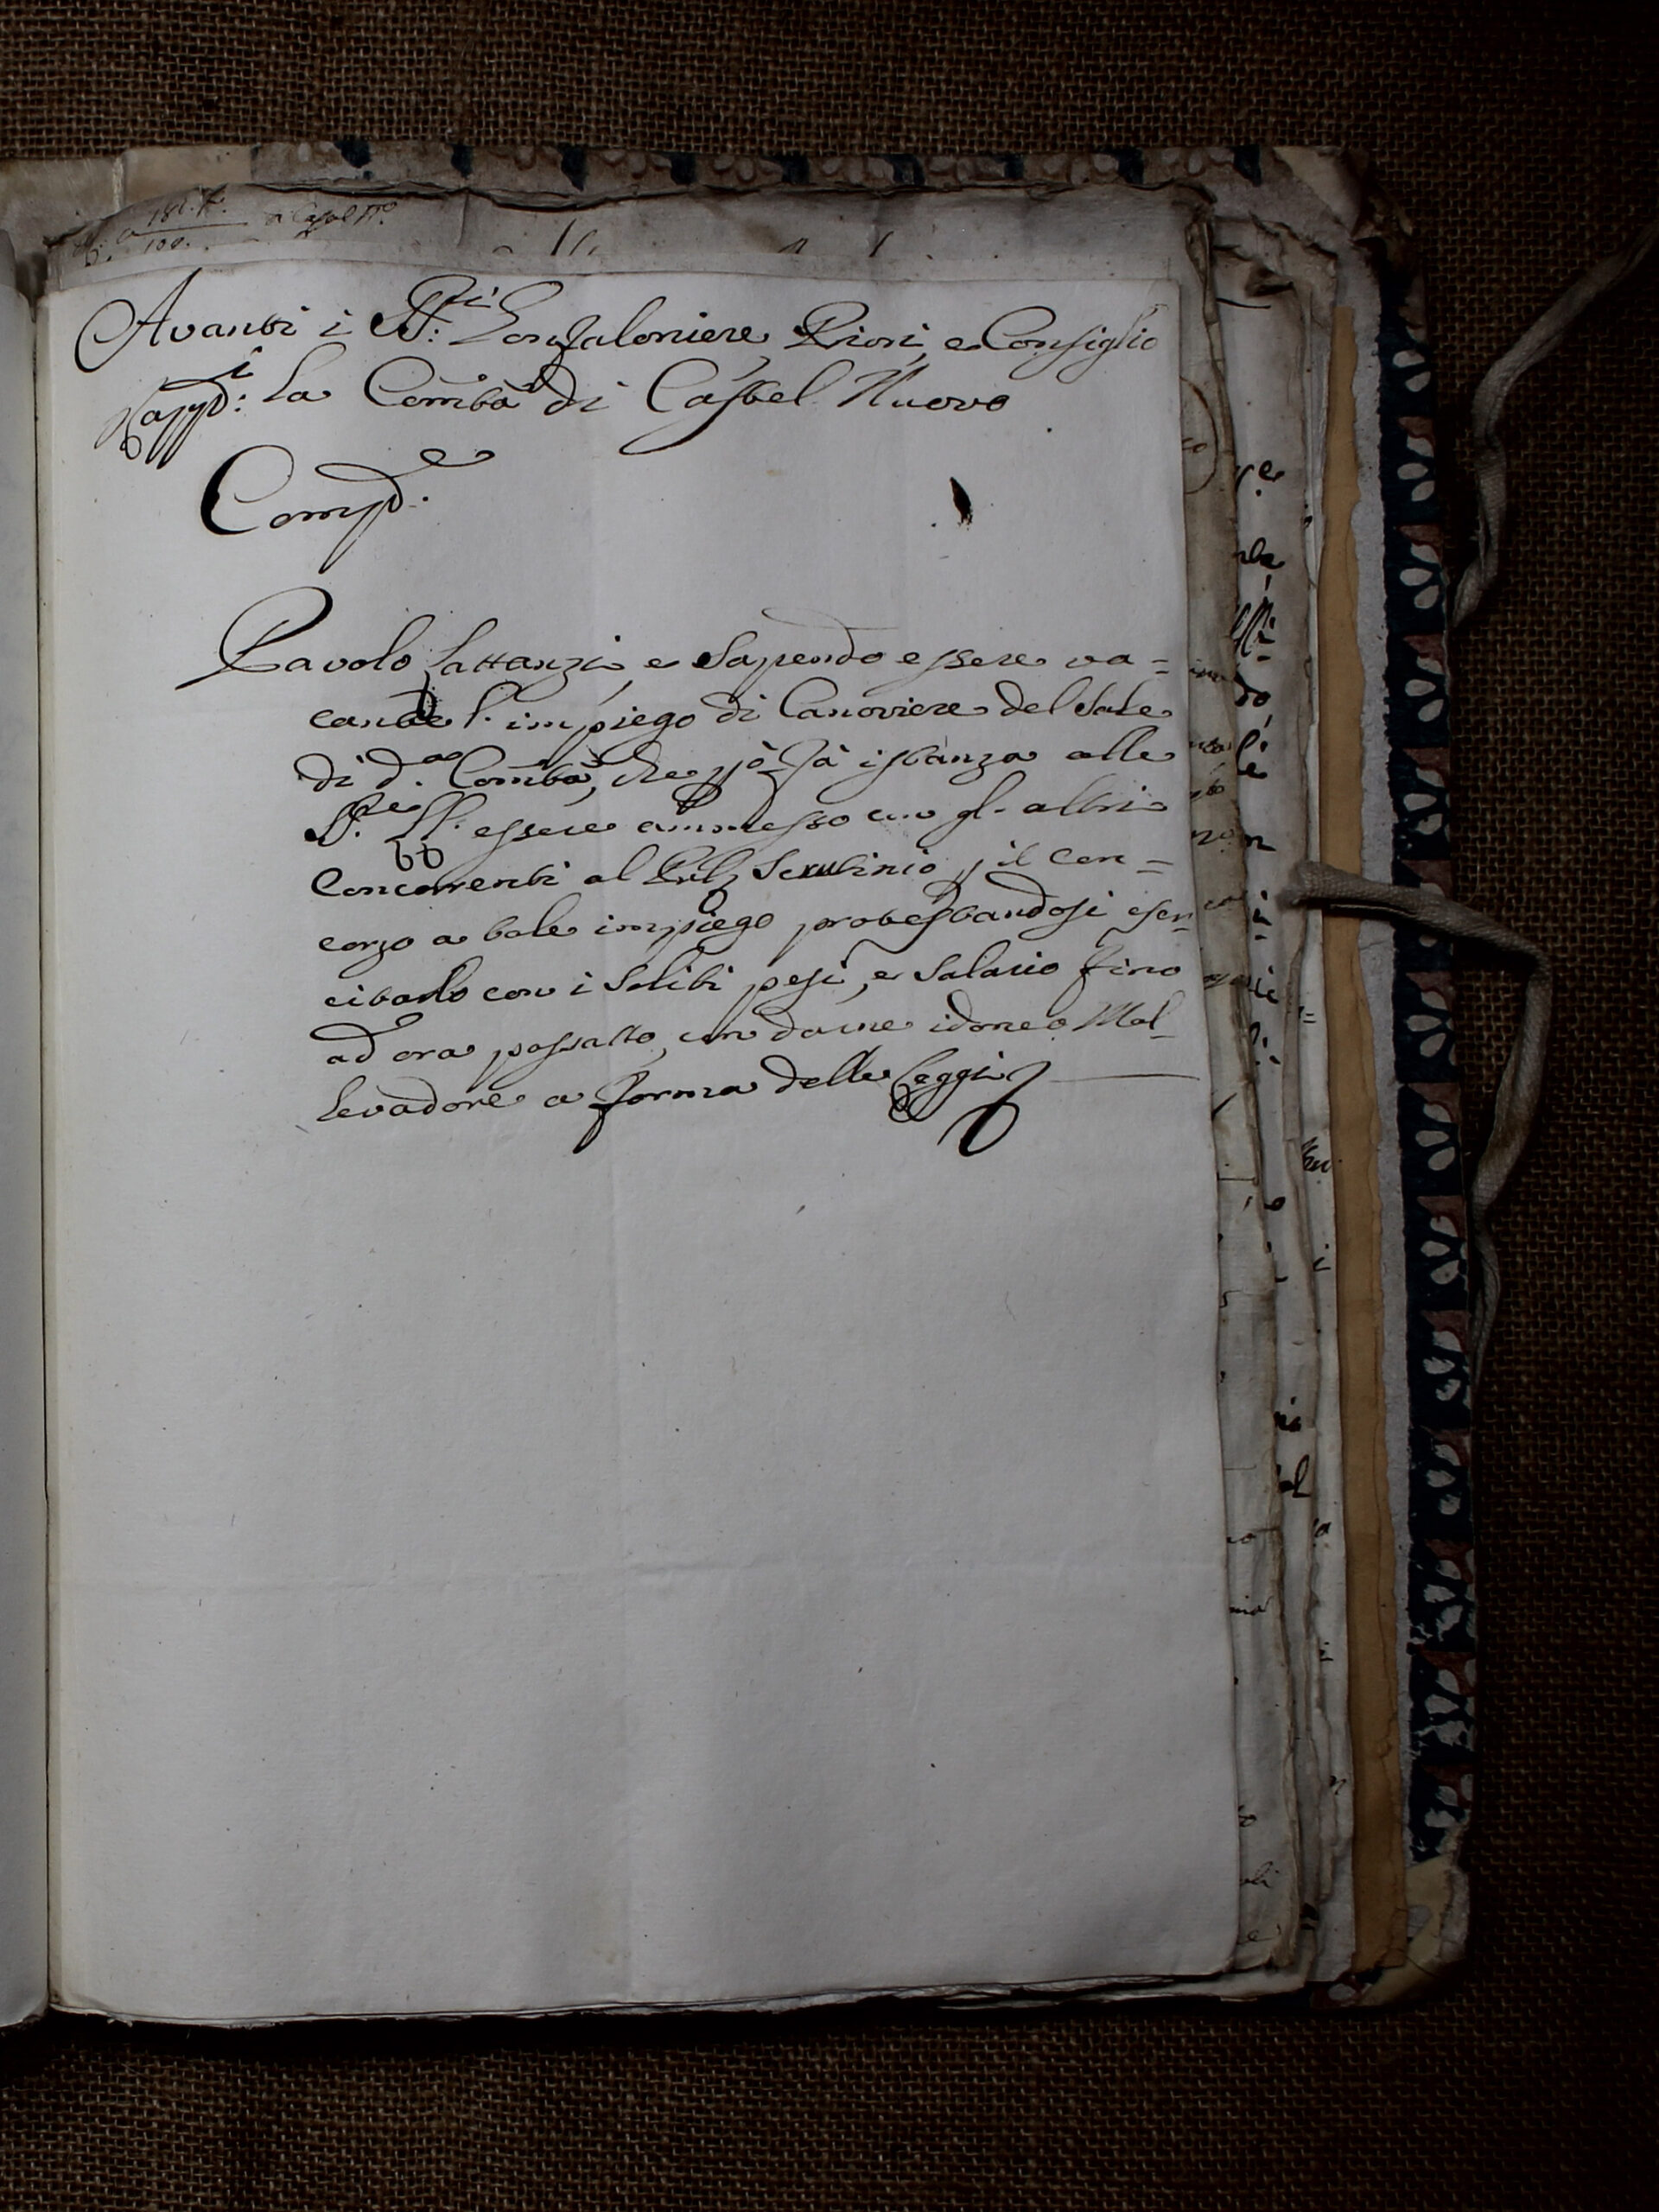 Avanti i SS.ri Gonfaloniere, Priori, e Consiglio
Rapp.ti la Com̃tà di Castel Nuovo
Comp.e
Pavolo Lattanzi, e Sapendo essere va=
cante l'impiego di Canoviere del Sale
di d.a Com̃tà, che p̀ò fà istanza alle
SS.e LL. essere ammesso con gl' altri
Concorrenti al Scrutinio p il Con=
corso a tale impiego protestandosi eser=
citarlo con i soliti pesi, e Salario fino
ad ora passatto, con darne idoneo Mal=
levadore a forma delle Leggi